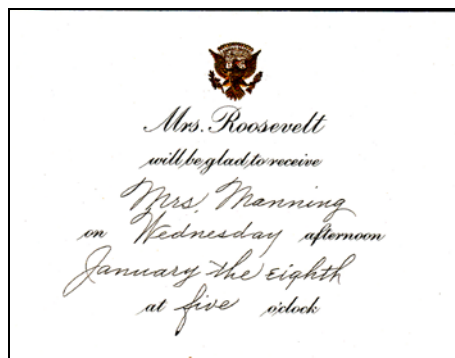 Mrs. Roosevelt
will be glad to receive
Mrs. Manning
on Wednesday afternoon
January the eighth
at five o'clock